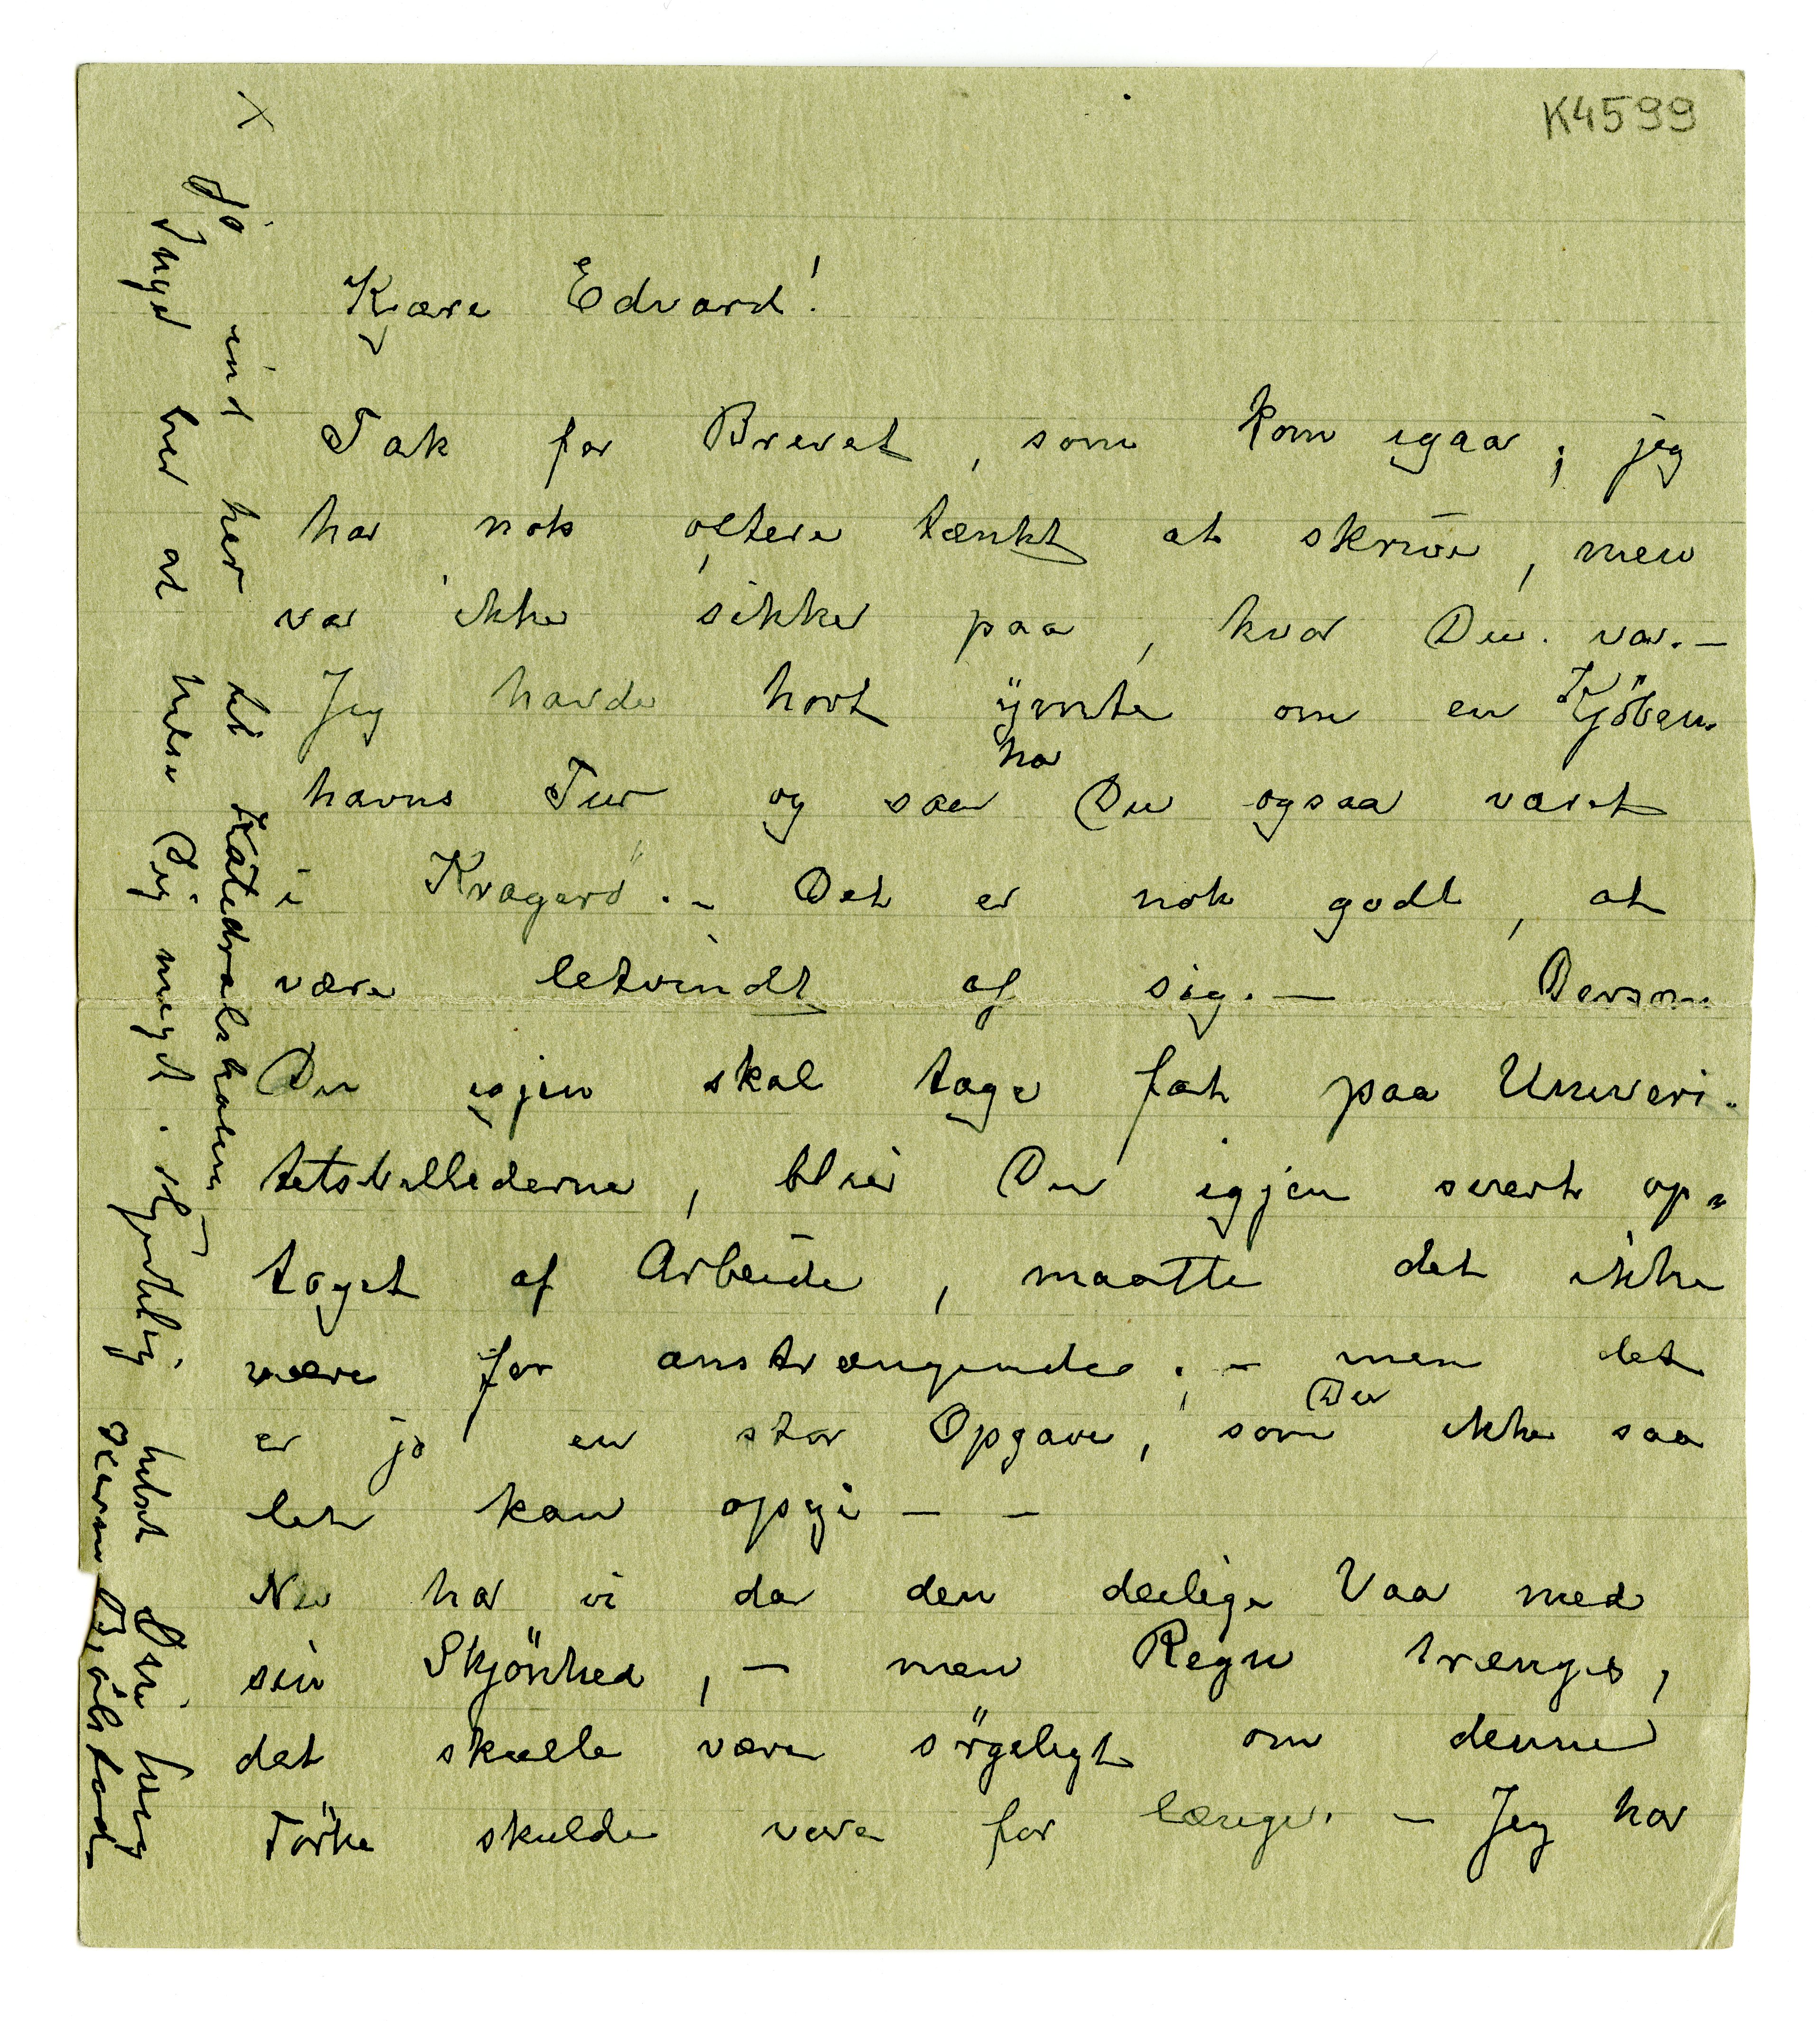 K4599
Kjære Edvard!
Tak for Brevet, som kom igaar; jeg
har nok oftere tænkt at skrive, men
var ikke sikker paa, hvor Du var. –
Jeg havde hørt ÿmte om en Kjöben-
havns Tur og saa har Du ogsaa været
i Kragerö. – Det er nok godt, at
være letvindt af sig. – Dersom
Du igjen skal tage fat paa Univeri-
tetsbillederne, blir Du igjen svert op-
taget af Arbeide, maatte det ikke
være for anstrængende; – men det
er jo en stor Opgave, som Du ikke saa
let kan opgi – –
Nu har vi da den deilige Vaar med
sin Skjönhed, – men Regn trænges,
det skulle være sörgeligt om denne
Törke skulde vare for længe. – Jeg har
x
Gå ind her til Katedralskolen
Inger ber at hilse Dig meget. Hjertelig hilset Din heng
Karen Bjølstad